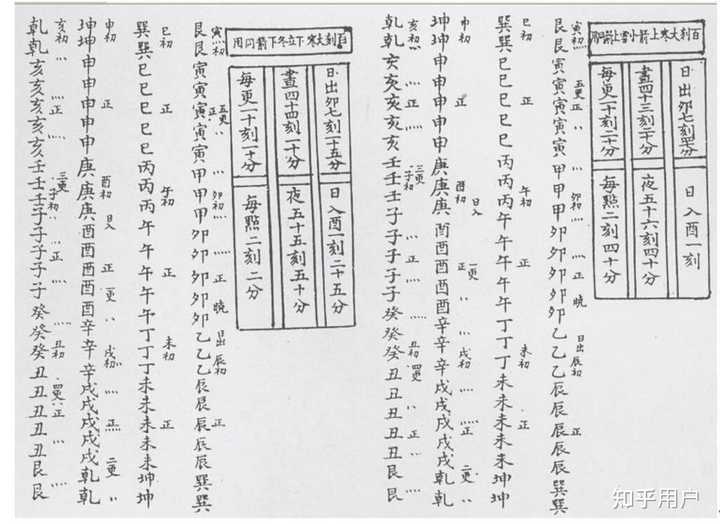 百刻大寒上箭小雪上箭同用
日出卯七刻
日入酉一刻
晝四十三刻二十分
夜五十六刻四十分
每更一十刻二十分
每點二刻四十分
寅初 五更 正 卯初 正 曉 日出 辰初 正
艮艮寅寅寅寅寅甲甲甲卯卯卯卯卯乙乙乙辰辰辰辰辰巽巽
巳初 正 午初 正 未初 正
巽巽巳巳巳巳巳丙丙丙午午午午午丁丁丁未未未未未坤坤
申初 正 酉初 日入 正 一更 戌初 正 二更
坤坤申申申申申庚庚庚酉酉酉酉酉辛辛辛戌戌戌戌戌乾乾
亥初 正 三更 子初 正 丑初 四更 正
乾乾亥亥亥亥亥壬壬壬子子子子子癸癸癸丑丑丑丑丑艮艮
百刻大寒下立冬下箭同用
日出卯七刻一十五分
日入酉一刻二十五分
晝四十四刻一十分
夜五十五刻五十分
每更一十刻一十分
每點二刻二分
寅初 五更 正 卯初 正 曉 日出 辰初 正
艮艮寅寅寅寅寅甲甲甲卯卯卯卯卯乙乙乙辰辰辰辰辰巽巽
巳初 正 午初 正 未初 正
巽巽巳巳巳巳巳丙丙丙午午午午午丁丁丁未未未未未坤坤
申初 正 酉初 日入 正 一更 戌初 正 二更
坤坤申申申申申庚庚庚酉酉酉酉酉辛辛辛戌戌戌戌戌乾乾
亥初 正 三更 子初 正 丑初 四更 正
乾乾亥亥亥亥亥壬壬壬子子子子子癸癸癸丑丑丑丑丑艮艮
知乎用户